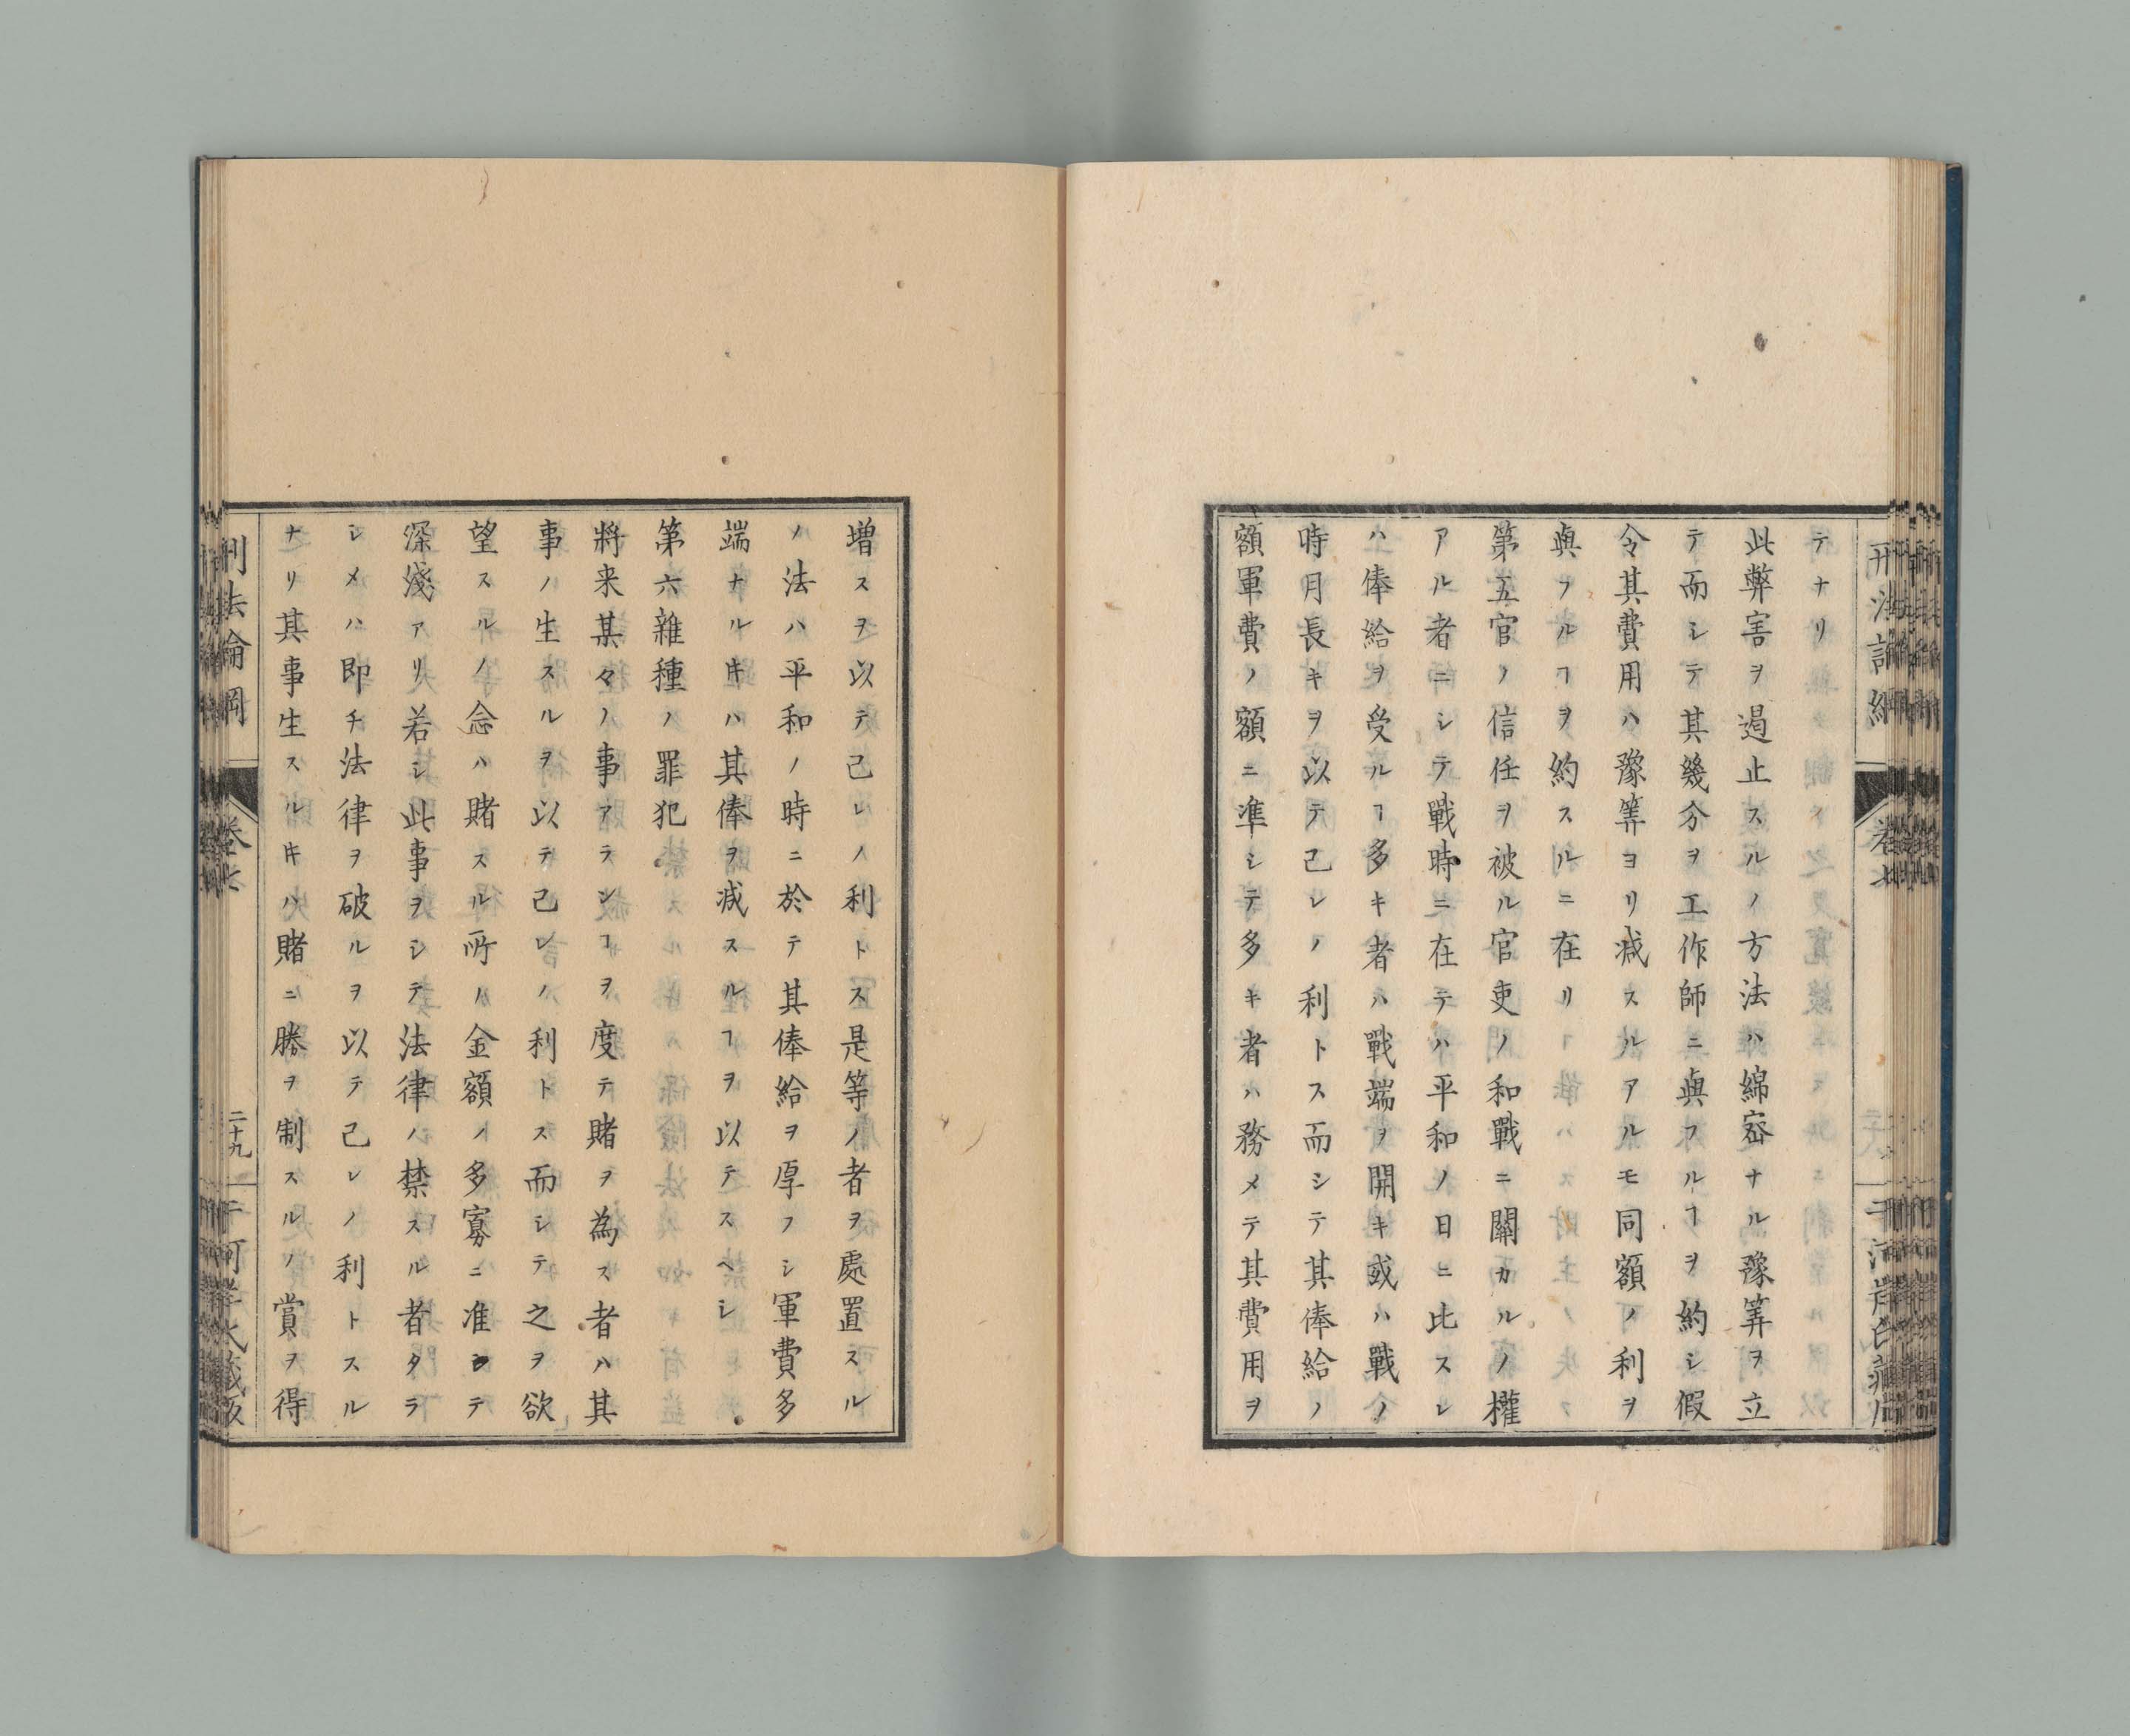 テナリ
此弊害ヲ遏止スルノ方法ハ綿宻ナル豫筭ヲ立
テ而シテ其幾分ヲ工作師ニ與フルヿヲ約シ假
令其費用ハ豫筭ヨリ减スルアルモ同額ノ利ヲ
與フルヿヲ約スルニ在リ
第五官ノ信任ヲ被ル官吏ノ和戰ニ關カルノ權
アル者ニシテ戰時ニ在テハ平和ノ日ニ比スレ
ハ俸給ヲ受ルヿ多キ者ハ戰端ヲ開キ或ハ戰ノ
時月長キヲ以テ己レノ利トス而シテ其俸給ノ
額軍費ノ額ニ準シテ多キ者ハ務メテ其費用ヲ
増スヲ以テ己レノ利トス是等ノ者ヲ處置スル
ノ法ハ平和ノ時ニ於テ其俸給ヲ厚フシ軍費多
端ナル𪜈ハ其俸ヲ减スルヿヲ以テスヘシ
第六雜種ノ罪犯
將来某々ノ事アランヿヲ度テ賭ヲ為ス者ハ其
事ノ生スルヲ以テ己レノ利トス而シテ之ヲ欲
望スルノ念ハ賭スル所ノ金額ノ多寡ニ准シテ
深淺アリ若シ此事ヲシテ法律ノ禁スル者タラ
シメハ即チ法律ヲ破ルヲ以テ己レノ利トスル
ナリ其事生スル𪜈ハ賭ニ勝ヲ制スルノ賞ヲ得
刑法論綱
卷七
二十九